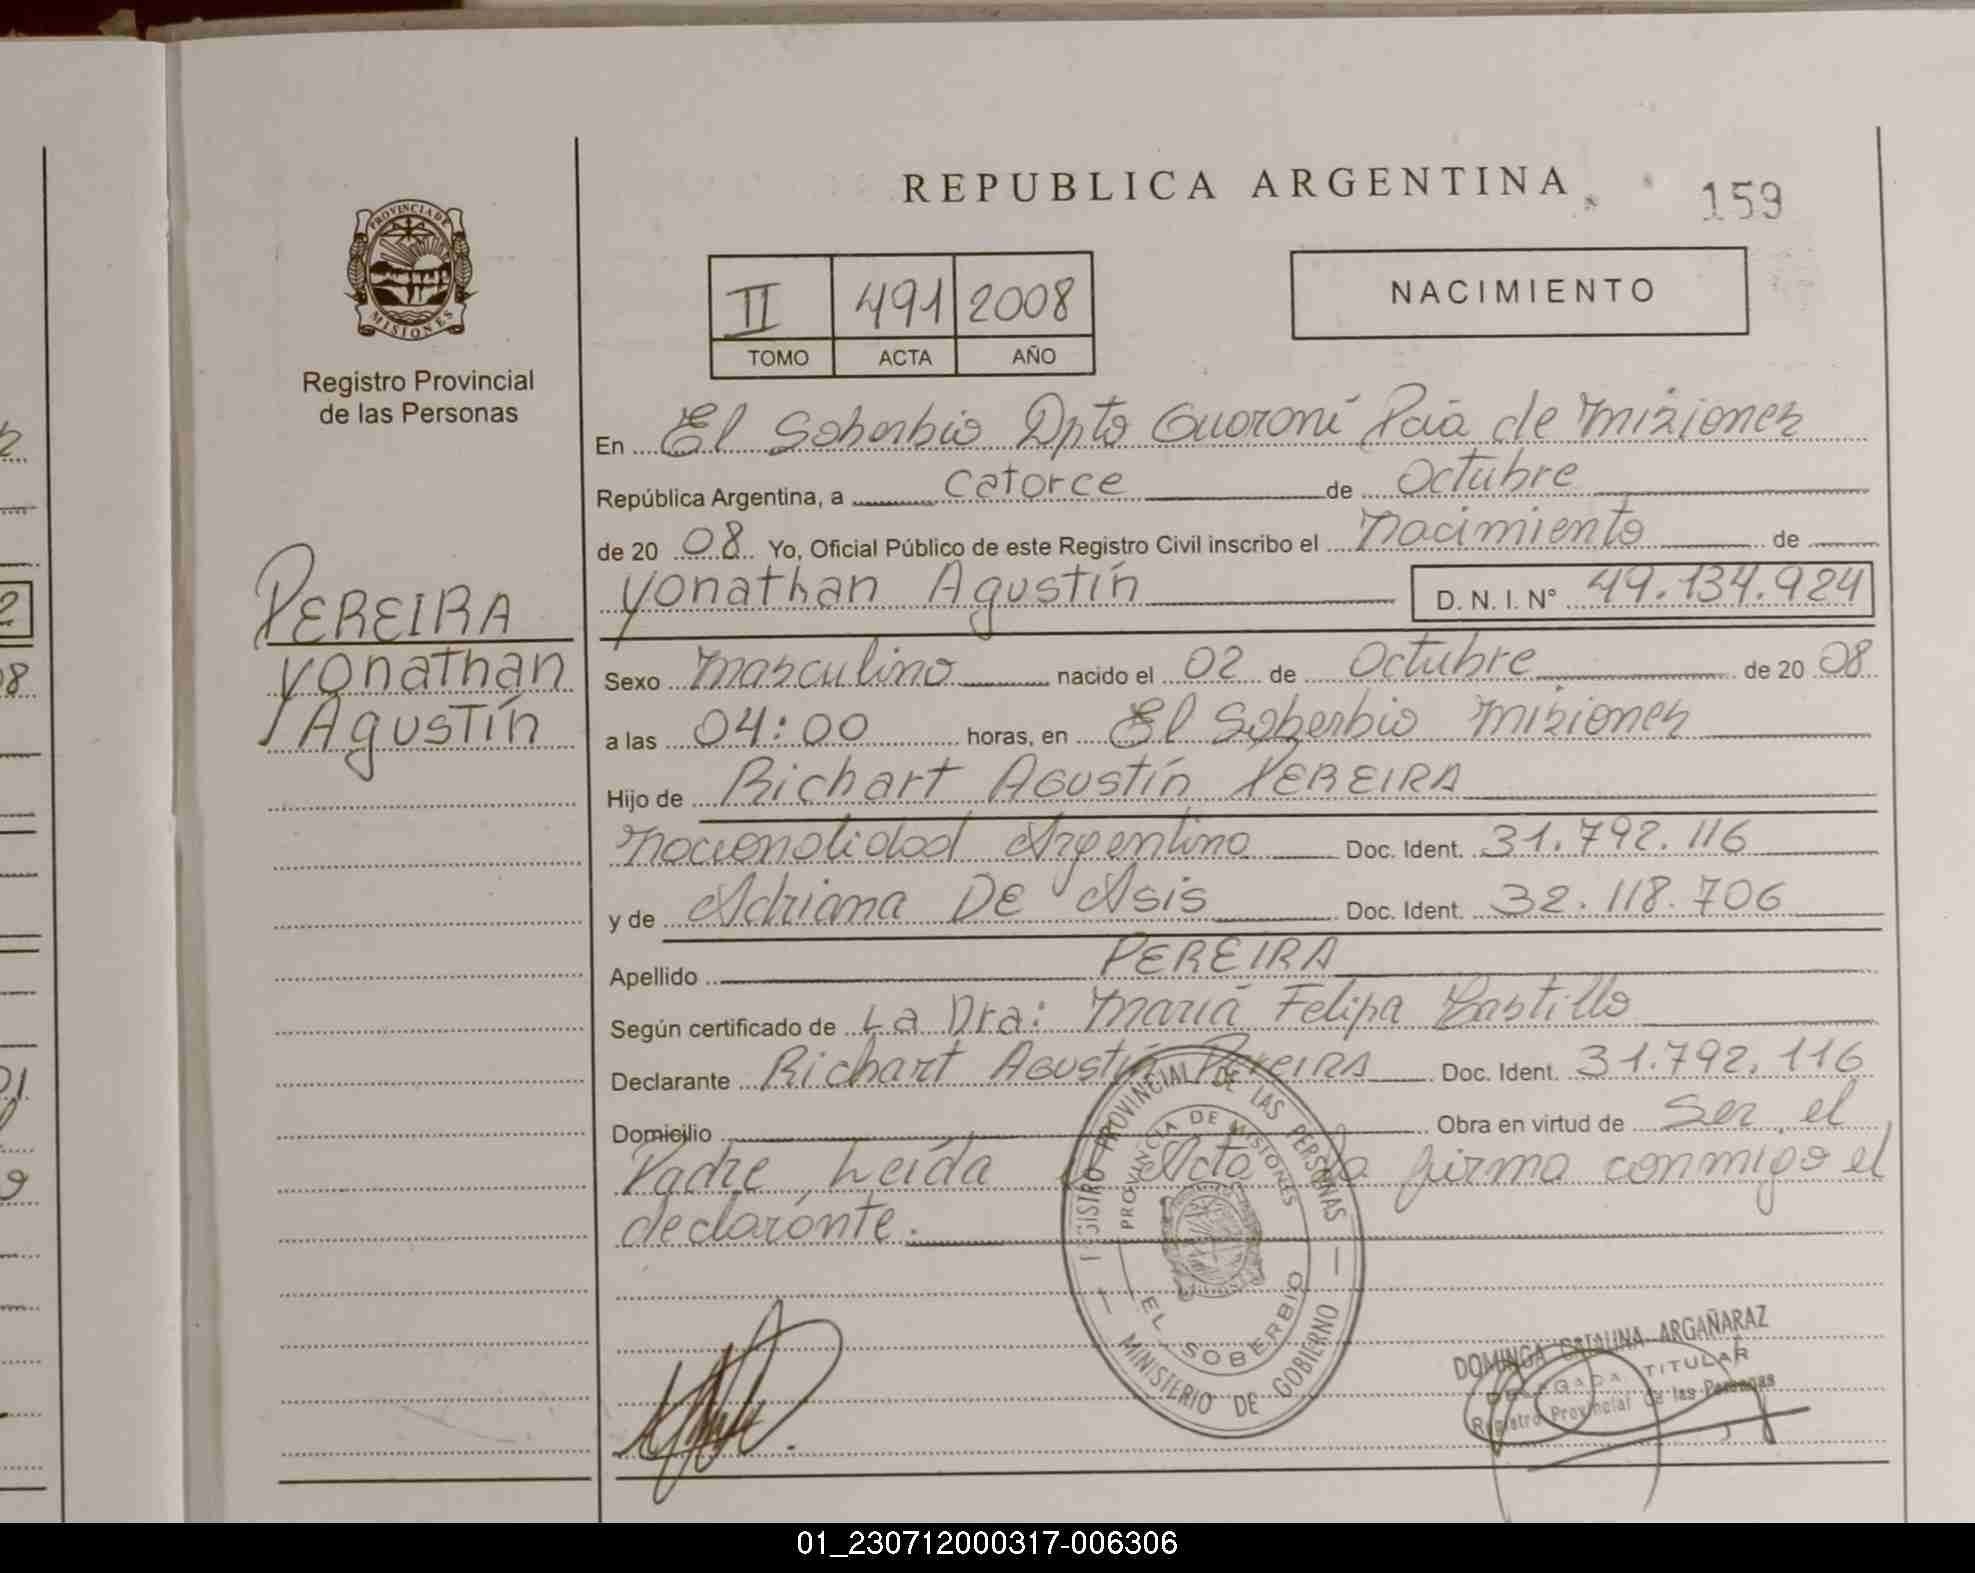 REPUBLICA ARGENTINA
159
PROVINCIA DE
MISIONES
Registro Provincial
de las Personas
II 491 2008
TOMO ACTA AÑO
NACIMIENTO
En El Soberbio Dpto Guaraní Pcia de Misiones
República Argentina, a catorce de Octubre
de 20 08 Yo, Oficial Público de este Registro Civil inscribo el Nacimiento de
Yonathan Agustín D. N. I. N° 49.134.924
PEREIRA
Yonathan
Agustín
Sexo Masculino nacido el 02 de Octubre de 20 08
a las 04:00 horas, en El Soberbio Misiones
Hijo de Richart Agustín PEREIRA
Nacionalidad Argentino Doc. Ident. 31.792.116
y de Adriana DE Asis Doc. Ident. 32.118.706
Apellido PEREIRA
Según certificado de La Dra: María Felipa Castillo
Declarante Richart Agustín Pereira Doc. Ident. 31.792.116
Domicilio Obra en virtud de Ser el
Padre Leída el Acta la firma conmigo el
declarante.
REGISTRO PROVINCIAL DE LAS PERSONAS
PROVINCIA DE MISIONES
EL SOBERBIO
MINISTERIO DE GOBIERNO
DOMINGA CATALINA ARGAÑARAZ
DELEGADA TITULAR
Registro Provincial de las Personas
01_230712000317-006306